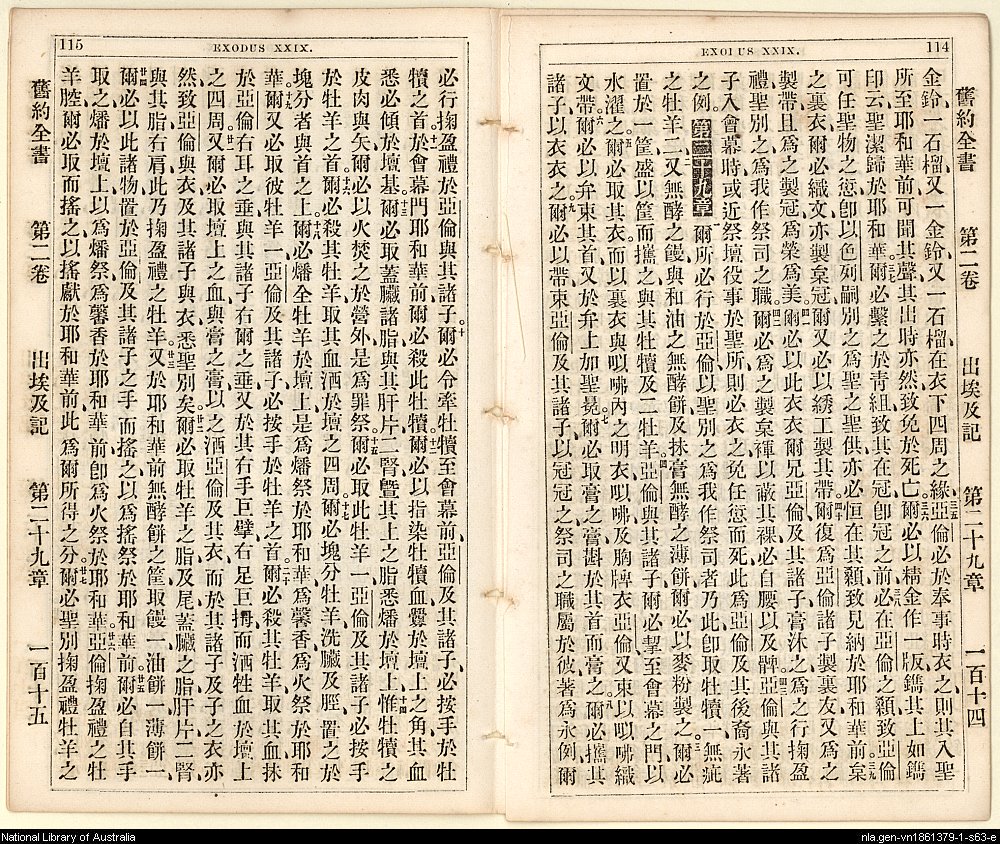 114
EXODUS XXIX.
舊約全書　第二卷　出埃及記　第二十九章　一百十四
金鈴、一石榴、又一金鈴、又一石榴、在衣下四周之緣、亞倫必於奉事時衣之、則其入聖
所至耶和華前、可聞其聲、其出時亦然、致免於死亡。爾必以精金作一版、鐫其上如鐫
印云、聖潔歸於耶和華。爾必繫之於靑組、致其在冠、卽冠之前、必在亞倫之顙、致亞倫
可任聖物之愆、卽以色列嗣別之爲聖之聖供、亦必恒在其顙、致見納於耶和華前。枲
之裏衣爾必織文、亦製枲冠、爾又必以綉工製其帶。爾復爲亞倫諸子製裏友、又爲之
製帶、且爲之製冠、爲榮爲美。爾必以此衣衣爾兄亞倫及其諸子、膏沐之、爲之行掬盈
禮、聖別之、爲我作祭司之職。爾必爲之製枲褌、以蔽其裸、必自腰以及髀。亞倫與其諸
子入會幕時、或近祭壇役事於聖所、則必衣之、免任愆而死、此爲亞倫及其後裔永著
之例。第二十九章 爾所必行於亞倫以聖別之、爲我作祭司者、乃此、卽取牡犢一、無疵
之牡羊二。又無酵之饅、與和油之無酵餅、及抹膏無酵之薄餅、爾必以麥粉製之。爾必
置於一筐、盛以筐而攜之、與其牡犢及二牡羊。亞倫與其諸子、爾必挈至會幕之門、以
水濯之。爾必取其衣、而以裏衣與㕽咈內之明衣、㕽咈及胸牌衣亞倫、又束以㕽咈織
文帶。爾必以弁束其首、又於弁上加聖冕。爾必取膏之膏、斟於其首而膏之。爾必攜其
諸子、以衣衣之。爾必以帶束亞倫及其諸子、以冠冠之、祭司之職屬於彼、著爲永例、爾
115
EXODUS XXIX.
必行掬盈禮於亞倫與其諸子。爾必令牽牡犢至會幕前、亞倫及其諸子、必按手於牡
犢之首。於會幕門耶和華前、爾必殺此牡犢。爾必以指染牡犢血、釁於壇上之角、其血
悉必傾於壇基。爾必取蓋臟諸脂、與其肝片二腎、曁其上之脂、悉燔於壇上。惟牡犢之
皮肉與矢、爾必以火焚之於營外、是爲罪祭。爾必取此牡羊一、亞倫及其諸子必按手
於牡羊之首。爾必殺其牡羊、取其血洒於壇之四周。爾必塊分牡羊、洗臟及脛、置之於
塊分者與首之上。爾必燔全牡羊於壇上、是爲燔祭於耶和華、爲馨香、爲火祭於耶和
華。爾又必取彼牡羊一、亞倫及其諸子、必按手於牡羊之首。爾必殺其牡羊、取其血抹
於亞倫右耳之垂、與其諸子右爾之垂、又於其右手巨擘、右足巨拇、而洒牲血於壇上
之四周。又爾必取壇上之血、與膏之膏、以之洒亞倫及其衣、而於其諸子及子之衣亦
然、致亞倫與衣、及其諸子與衣、悉聖別矣。爾必取牡羊之脂及尾、蓋臟之脂、肝片二腎
與其脂、右肩、此乃掬盈禮之牡羊。又於耶和華前、無酵餅之筐、取饅一、油餅一、薄餅一、
爾必以此諸物、置於亞倫及其諸子之手、而搖之以爲搖祭於耶和華前。爾必自其手
取之、燔於壇上、以爲燔祭、爲馨香於耶和華前、卽爲火祭於耶和華。亞倫掬盈禮之牡
羊膛、爾必取而搖之、以搖獻於耶和華前、此爲爾所得之分。爾必聖別掬盈禮牡羊之
舊約全書　第二卷　出埃及記　第二十九章　一百十五
National Library of Australia
nla.gen-vn1861379-1-s63-e